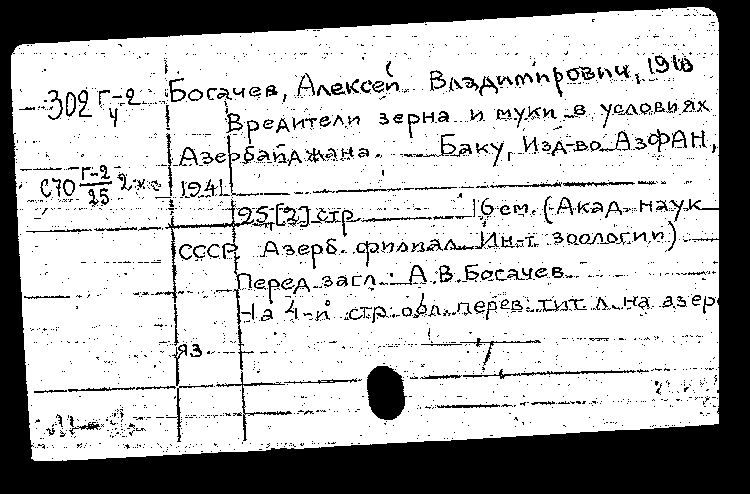 302 Г-2/4
Богачев, Алексей Владимирович, 1910
Вредители зерна и муки в условиях
Азербайджана. Баку, Изд-во АзФАН,
С70 Г-2/25 2 жз
1941.
95,[2] стр 16 см. (Акад. наук
СССР. Азерб. филиал. Ин-т зоологии)
Перед загл.: А.В. Богачев
На 4-й стр. обл. перев. тит. л. на азерб
яз.